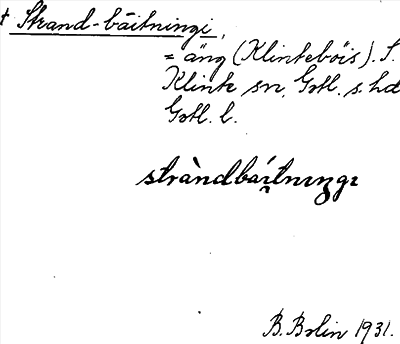 † Strand-bäitningi,
= äng (Klinteböis). S.
Klinte sn, Gotl. s. hd
Gotl. l.
stràndbáitnıŋgı
B. Bolin 1931.